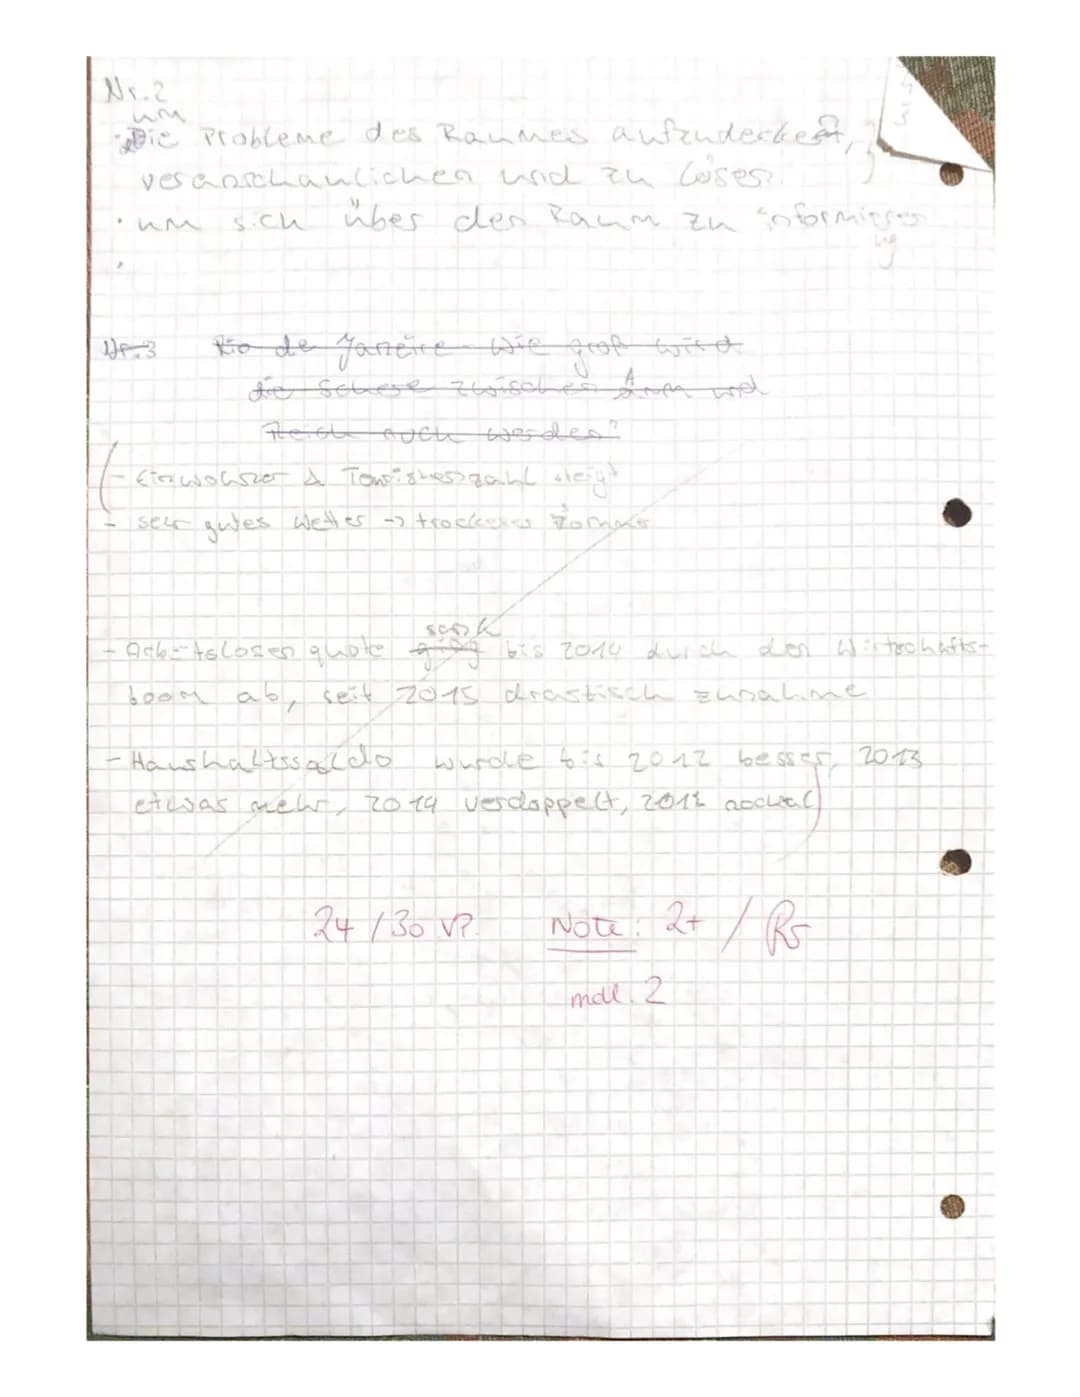 Nr. 2
um
die Probleme des Raumes aufzudecken,
veranschaulichen und zu lösen.
· um sich über den Raum zu informieren
Nr. 3 Rio de Janeiro - Wie groß wird
die Schere zwischen Arm und
Reich noch werden?
- Einwohner & Touristenzahl steigt
- sehr gutes Wetter → trockener Sommer
sank
- Arbeitslosenquote ging bis 2014 durch den Wirtschafts-
boom ab, seit 2015 drastisch zunahme
- Haushaltssaldo wurde bis 2012 besser, 2013
etwas mehr, 2014 verdoppelt, nochmal
24 / 30 VP. Note: 2+ /
mdl. 2